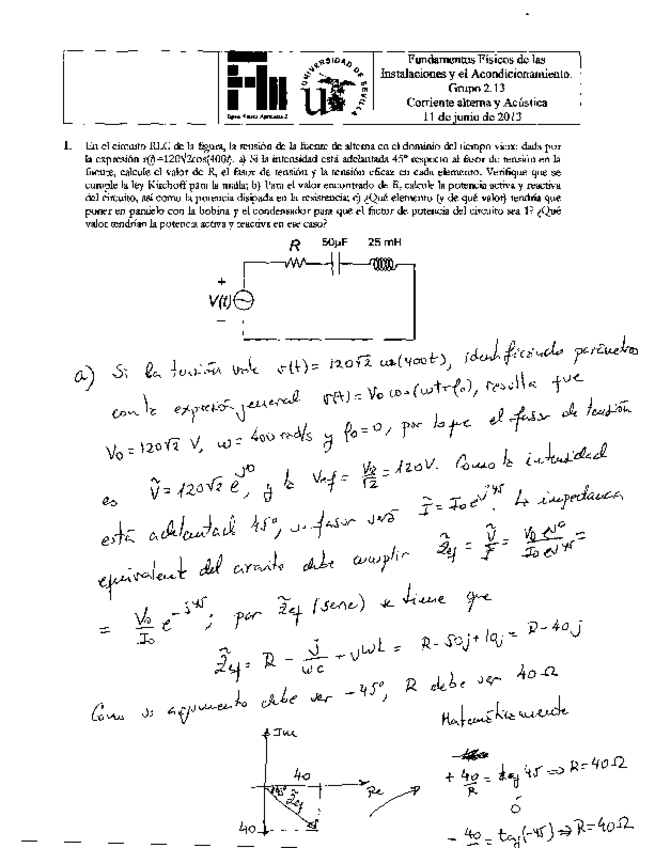 UNIVERSIDAD DE SEVILLA
Fundamentos Físicos de las
Instalaciones y el Acondicionamiento.
Grupo 2.13
Corriente alterna y Acústica
11 de junio de 2013
1. En el circuito RLC de la figura, la tensión de la fuente de alterna en el dominio del tiempo viene dada por
la expresión v(t)=120√2cos(400t). a) Si la intensidad está adelantada 45° respecto al fasor de tensión en la
fuente, calcule el valor de R, el fasor de tensión y la tensión eficaz en cada elemento. Verifique que se
cumple la ley Kirchoff para la malla; b) Para el valor encontrado de R, calcule la potencia activa y reactiva
del circuito, así como la potencia disipada en la resistencia; c) ¿Qué elemento (y de qué valor) tendría que
poner en paralelo con la bobina y el condensador para que el factor de potencia del circuito sea 1? ¿Qué
valor tendrían la potencia activa y reactiva en ese caso?
R 50μF 25 mH
+
V(t)
−
a) Si la tensión vale v(t) = 120√2 cos(400t), identificando parámetros
con la expresión general v(t) = V₀ cos(ωt+φ₀), resulta que
V₀ = 120√2 V, ω = 400 rad/s y φ₀ = 0, por lo que el fasor de tensión
es Ṽ = 120√2 e^j0, y la Vef = V₀/√2 = 120V. Como la intensidad
está adelantada 45°, su fasor será Ĩ = I₀ e^j45. La impedancia
equivalente del circuito debe cumplir Z̃ef = Ṽ/Ĩ = V₀ e^j0/I₀ e^j45 =
= V₀/I₀ e^-j45; por Z̃ef (serie) se tiene que
Z̃ef = R − j/ωC + jωL = R − 50j + 10j = R − 40j
Como su argumento debe ser −45°, R debe ser 40 Ω
Matemáticamente
Im
40
Re
45° Z̃ef
40
+ 40/R = tag 45 ⇒ R = 40 Ω
ó
− 40/R = tag(−45) ⇒ R = 40 Ω